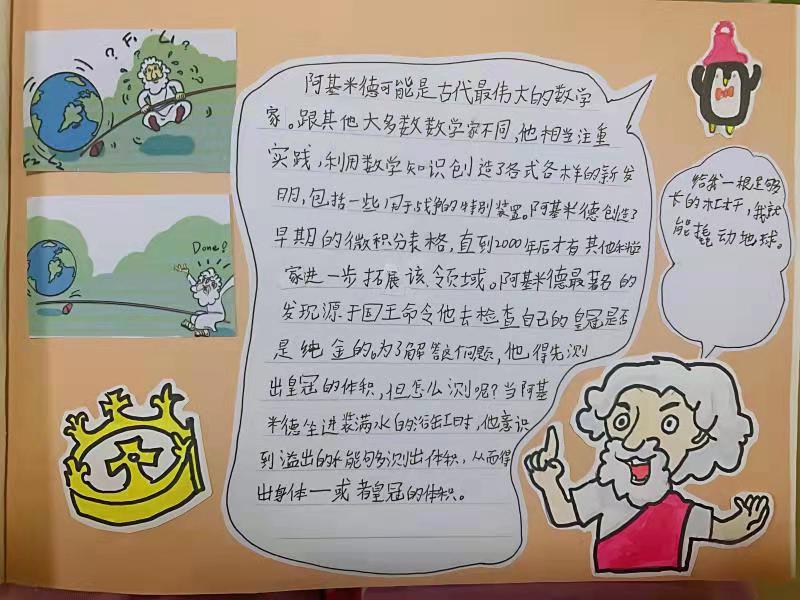 ? F₁ L₁ ?
F₂ L₂
Done?
阿基米德可能是古代最伟大的数学
家。跟其他大多数数学家不同,他相当注重
实践,利用数学知识创造了各式各样的新发
明,包括一些用于战争的特别装置。阿基米德创造了
早期的微积分表格,直到2000年后才有其他科学
家进一步拓展该领域。阿基米德最著名的
发现源于国王命令他去检查自己的皇冠是否
是纯金的。为了解答问题,他得先测
出皇冠的体积,但怎么测呢?当阿基
米德坐进装满水的浴缸时,他意识
到溢出的水能够测出体积,从而得
出身体一或者皇冠的体积。
给我一根足够
长的杠杆,我就
能撬动地球。